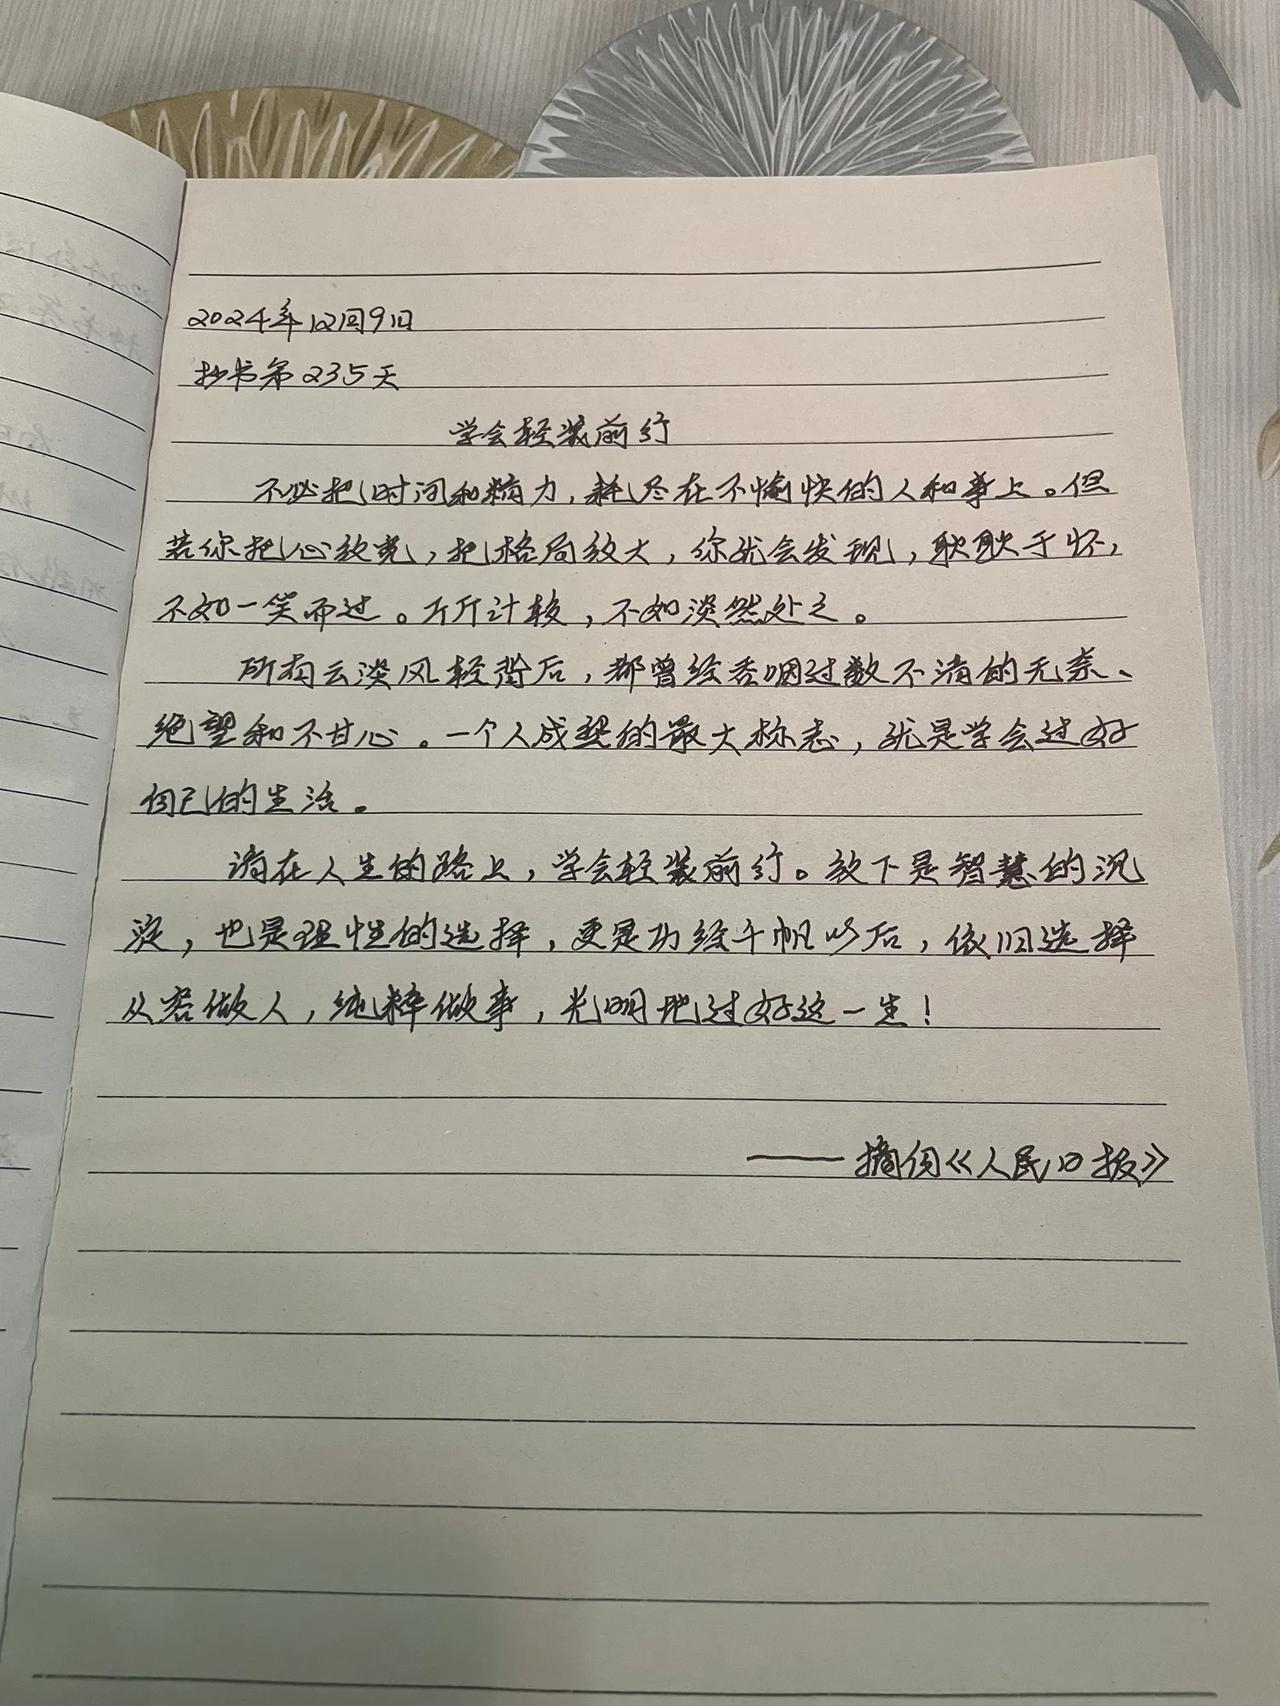 2024年12月9日
抄书第235天
学会轻装前行
不必把时间和精力，耗尽在不愉快的人和事上。但
若你把心放宽，把格局放大，你就会发现，耿耿于怀，
不如一笑而过。斤斤计较，不如淡然处之。
所有云淡风轻背后，都曾经吞咽过数不清的无奈、
绝望和不甘心。一个人成熟的最大标志，就是学会过好
自己的生活。
请在人生的路上，学会轻装前行。放下是智慧的沉
淀，也是理性的选择，更是历经千帆以后，依旧选择
从容做人，纯粹做事，光明地过好这一生！
——摘自《人民日报》